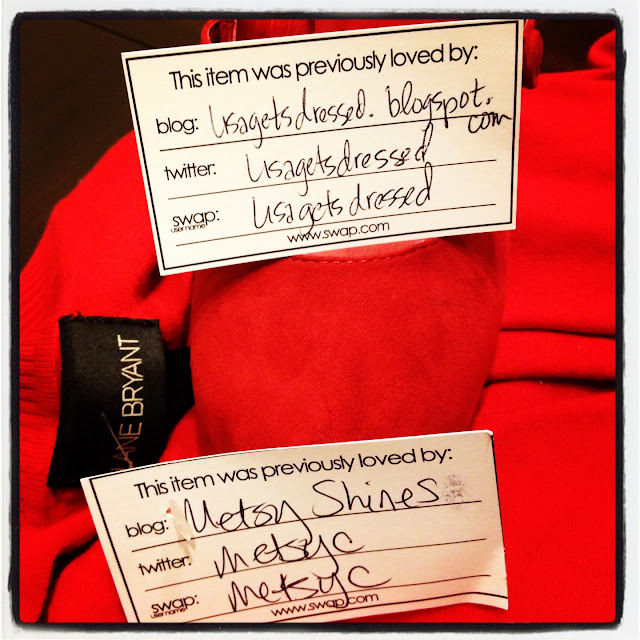 This item was previously loved by:
blog: lisagetsdressed.blogspot.
com
twitter: lisagetsdressed
swap: lisagetsdressed
user name
www.swap.com
LANE BRYANT
This item was previously loved by:
blog: Metsy Shines
twitter: metsyc
swap: metsyc
user name
www.swap.com